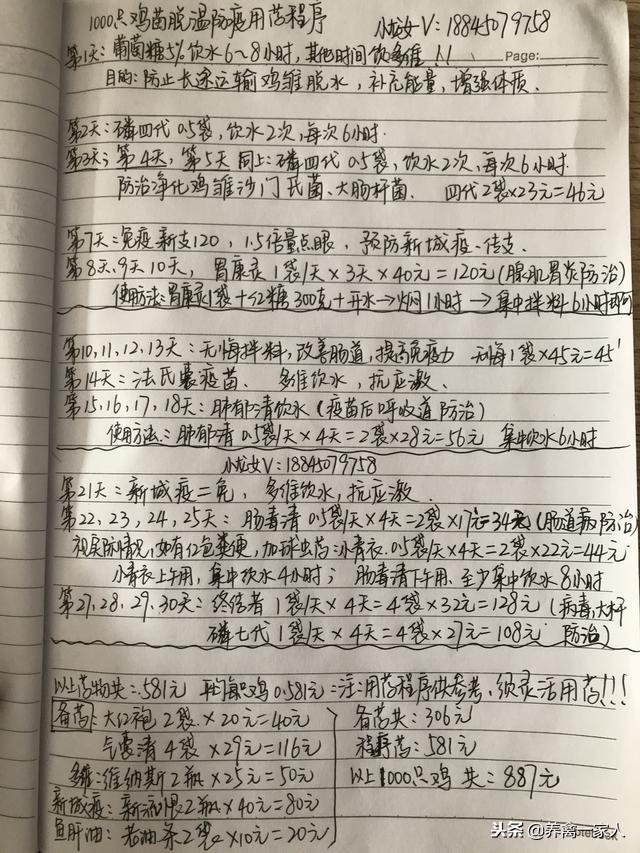 1000只鸡苗脱温防疫用药程序 小龙女V:18845079758
Page:
第1天:葡萄糖5%饮水6~8小时,其他时间饮多维!!
目的:防止长途运输鸡雏脱水,补充能量,增强体质.
第2天:磷四代 0.5袋,饮水2次,每次6小时.
第3天;第4天,第5天 同上:磷四代 0.5袋,饮水2次,每次6小时.
防治净化鸡雏沙门氏菌、大肠杆菌. 四代2袋×23元=46元
第7天:免疫新支120,1.5倍量点眼,预防新城疫、传支.
第8天、9天10天,胃康灵1袋/天×3天×40元=120元(腺肌胃炎防治)
使用方法:胃康灵1袋+红糖300克+开水→焖1小时→集中拌料6小时即可
第10,11,12,13天:无悔拌料,改善肠道,提高免疫力 无悔1袋×45元=45
第14天:法氏囊疫苗. 多维饮水,抗应激.
第15,16,17,18天:肺郁清饮水(疫苗后呼吸道防治)
使用方法:肺郁清 0.5袋/天×4天=2袋×28元=56元 集中饮水6小时
小龙女V:18845079758
第21天:新城疫二免,多维饮水,抗应激.
第22,23,24,25天:肠毒清 0.5袋/天×4天=2袋×17元=34元(肠道病防治)
视实际情况,如有红色粪便,加球虫药:小青衣.0.5袋/天×4天=2袋×22元=44元
小青衣上午用,集中饮水4小时;肠毒清下午用、至少集中饮水8小时
第27,28,29,30天:终结者 1袋/天×4天=4袋×32元=128元(病毒大杆
磷七代 1袋/天×4天=4袋×27元=108元 防治)
以上药物共:581元 平均每只鸡0.581元 注:用药程序供参考,须灵活用药!!!
备药:大红袍2袋×20元=40元 备药共:306元
气囊清 4袋×29元=116元 程序药:581元
多维:维纳斯2瓶×25元=50元 以上1000只鸡 共:887元
新城疫:新流1号2瓶×40元=80元
鱼肝油:老油条2袋×10元=20元
头条@养禽一家人